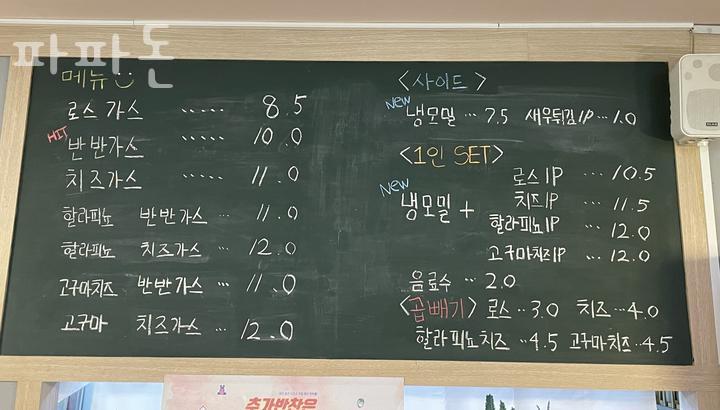 파파돈
메뉴
로스 가스 ..... 8.5
HIT 반반가스 ..... 10.0
치즈가스 ..... 11.0
할라피뇨 반반가스 ... 11.0
할라피뇨 치즈가스 ... 12.0
고구마치즈 반반가스 ... 11.0
고구마 치즈가스 ... 12.0
<사이드>
NEW 냉모밀 ... 7.5 새우튀김1P ... 1.0
<1인 SET>
NEW 냉모밀 +
로스1P ... 10.5
치즈1P ... 11.5
할라피뇨1P ... 12.0
고구마치즈1P ... 12.0
음료수 ... 2.0
<곱빼기> 로스 .. 3.0 치즈 ... 4.0
할라피뇨치즈 ... 4.5 고구마치즈 ... 4.5
추가반찬은